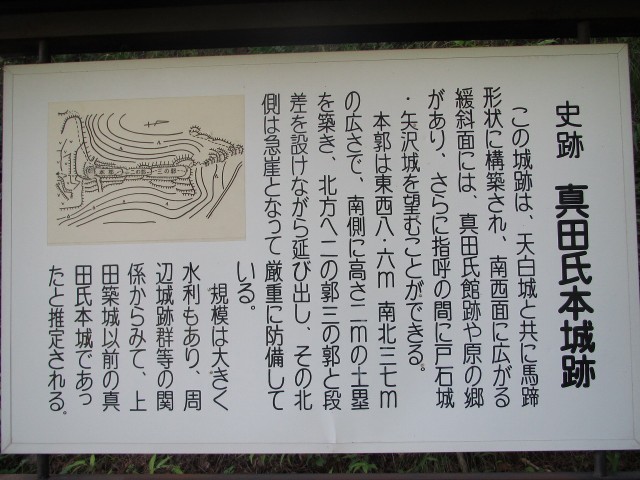 史跡 真田氏本城跡
この城跡は、天白城と共に馬蹄
形状に構築され、南西面に広がる
緩斜面には、真田氏館跡や原の郷
があり、さらに指呼の間に戸石城
・矢沢城を望むことができる。
本郭は東西八・六m 南北三七m
の広さで、南側に高さ二mの土塁
を築き、北方へ二の郭三の郭と段
差を設けながら延び出し、その北
側は急崖となって厳重に防備して
いる。
規模は大きく
水利もあり、周
辺城跡群等の関
係からみて、上
田築城以前の真
田氏本城であっ
たと推定される。
本郭
二の郭
三の郭